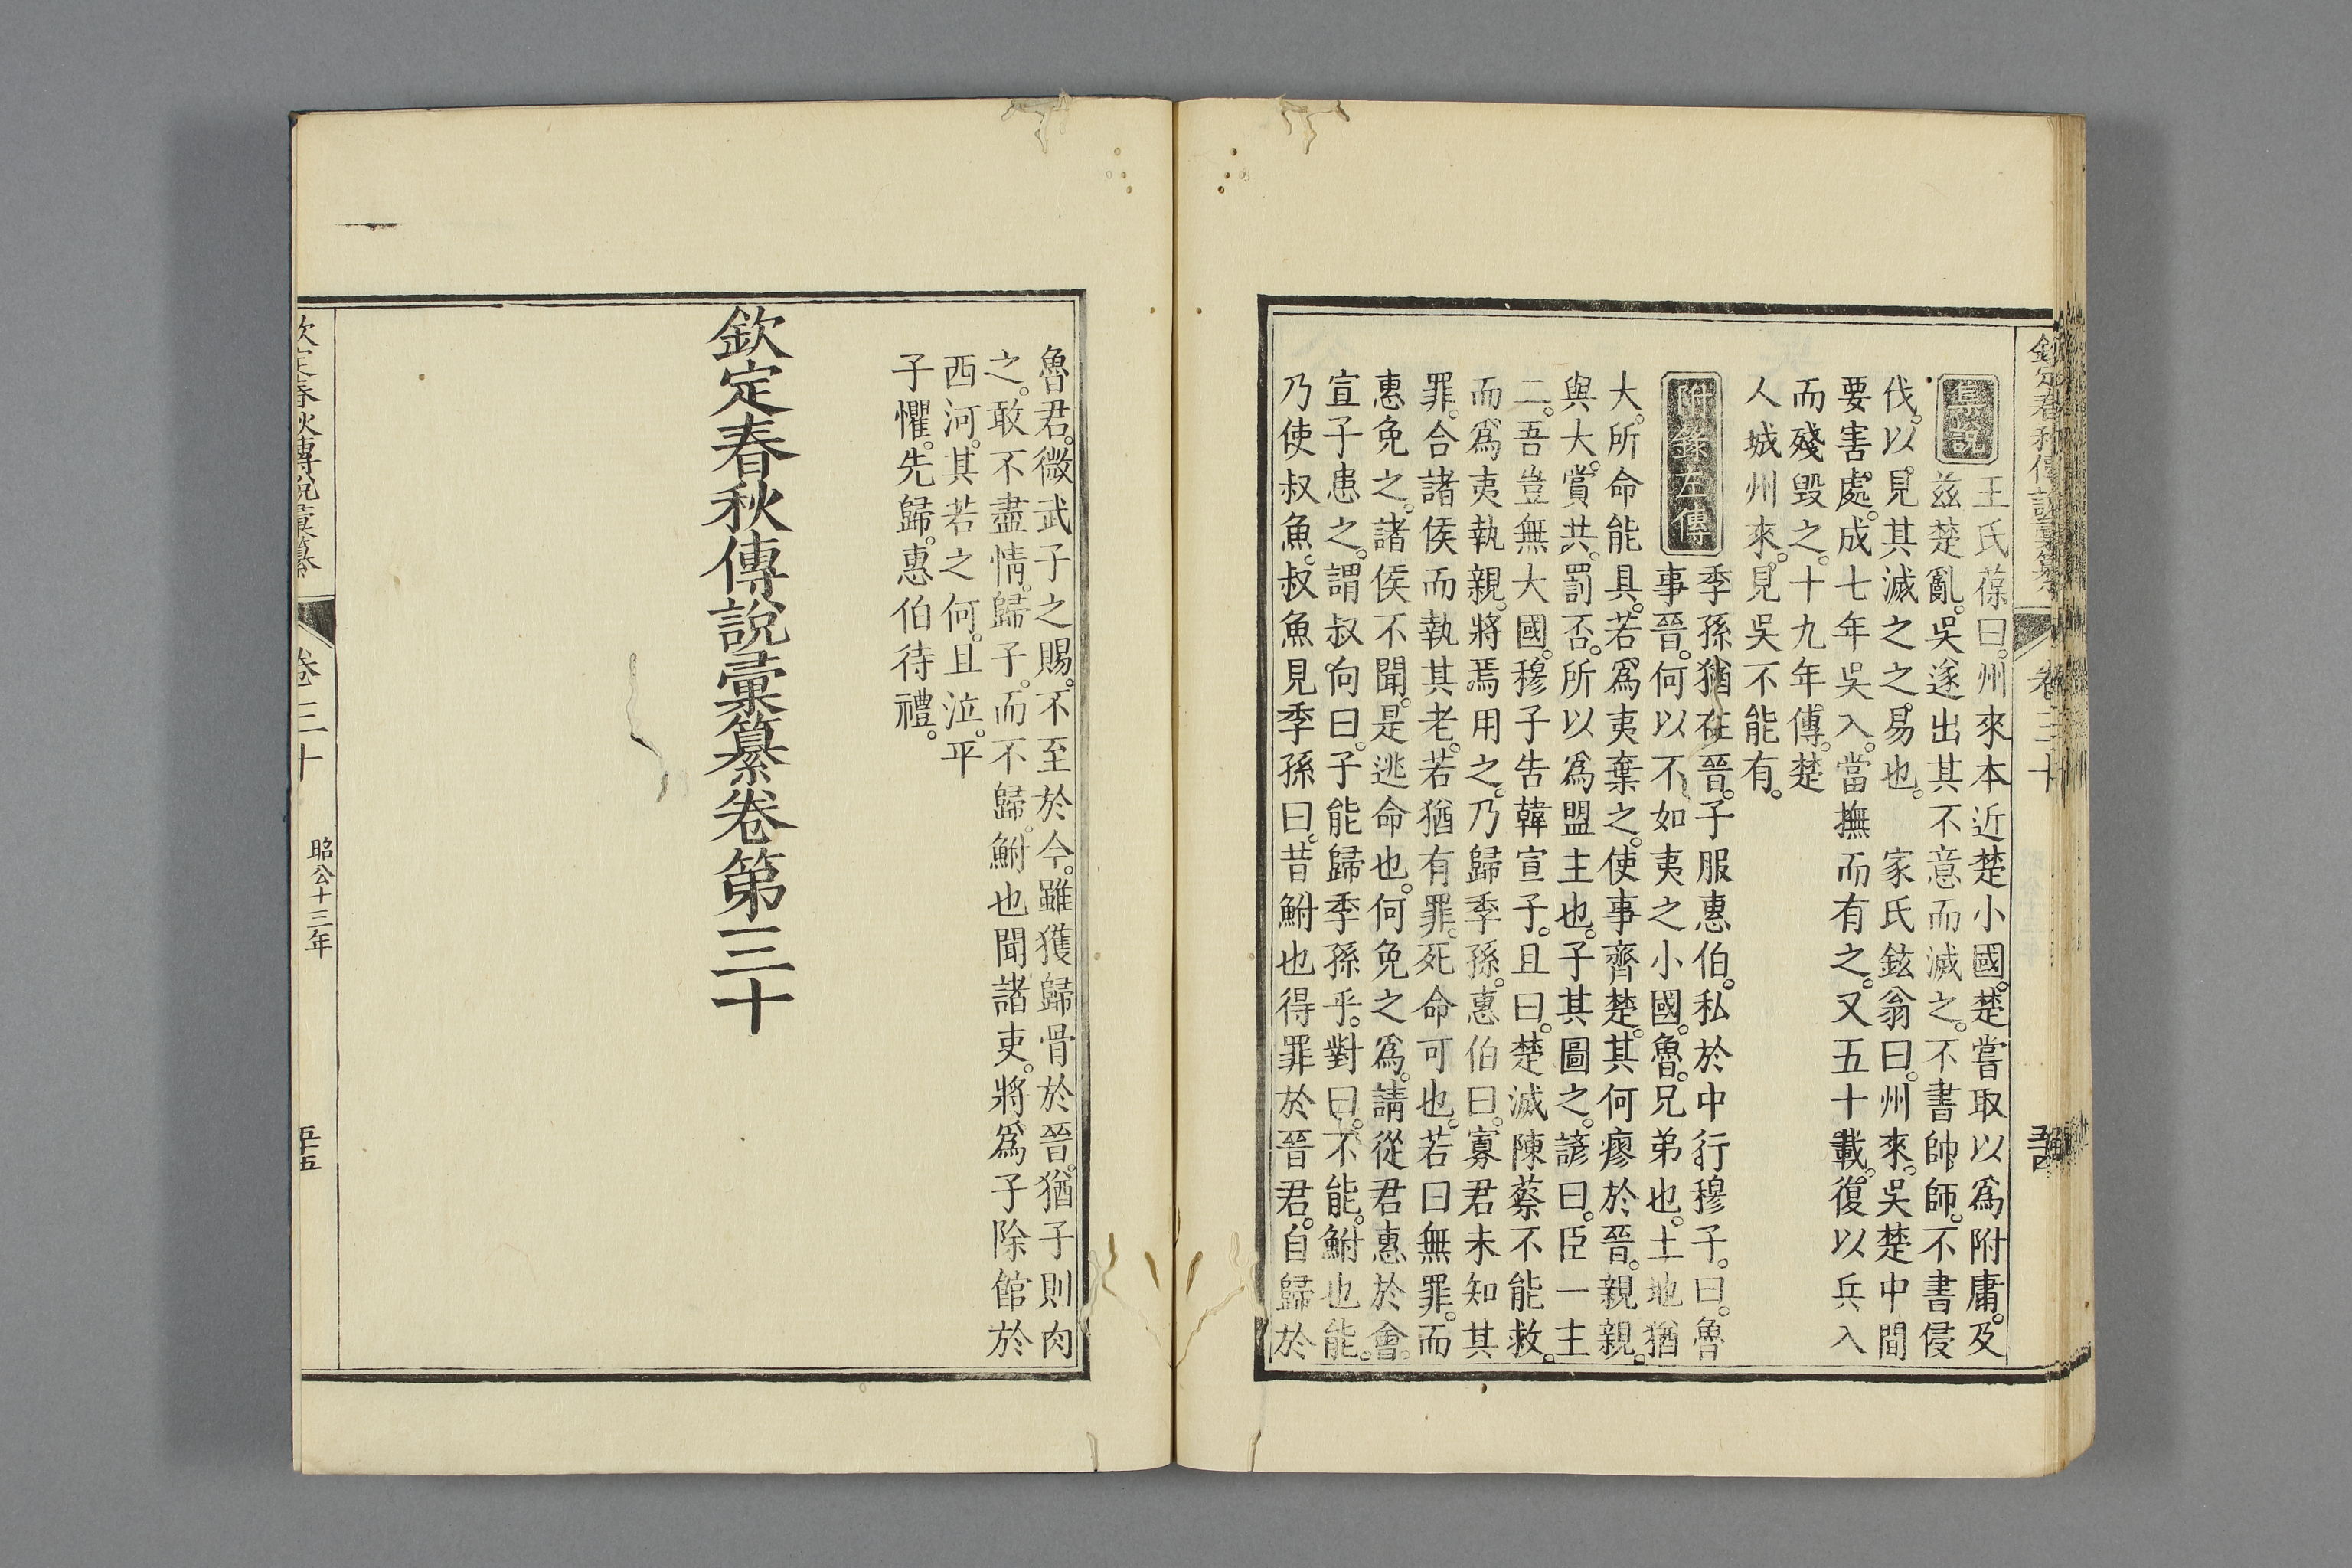 欽定春秋傳說彙纂　卷三十
集說
王氏葆曰。州來本近楚小國。楚嘗取以爲附庸。及
兹楚亂。吳遂出其不意而滅之。不書帥師。不書侵
伐。以見其滅之之易也。　家氏鉉翁曰。州來。吳楚中間
要害處。成七年吳入。當撫而有之。又五十載。復以兵入
而殘毀之。十九年。傳。楚
人城州來。見吳不能有。
附錄左傳
季孫猶在晉。子服惠伯。私於中行穆子。曰。魯
事晉。何以不如夷之小國。魯。兄弟也。土地猶
大。所命能具。若爲夷棄之。使事齊楚。其何瘳於晉。親親。
與大。賞共。罰否。所以爲盟主也。子其圖之。諺曰。臣一主
二。吾豈無大國。穆子告韓宣子。且曰。楚滅陳蔡不能救。
而爲夷執親。將焉用之。乃歸季孫。惠伯曰。寡君未知其
罪。合諸侯而執其老。若猶有罪。死命可也。若曰無罪。而
惠免之。諸侯不聞。是逃命也。何免之爲。請從君惠於會。
宣子患之。謂叔向曰。子能歸季孫乎。對曰。不能。鮒也能。
乃使叔魚。叔魚見季孫曰。昔鮒也得罪於晉君。自歸於
魯君。微武子之賜。不至於今。雖獲歸骨於晉。猶子則肉
之。敢不盡情。歸子。而不歸。鮒也聞諸吏。將爲子除館於
西河。其若之何。且泣。平
子懼。先歸。惠伯待禮。
欽定春秋傳說彙纂卷第三十
欽定春秋傳說彙纂　卷三十　昭公十三年　五十五